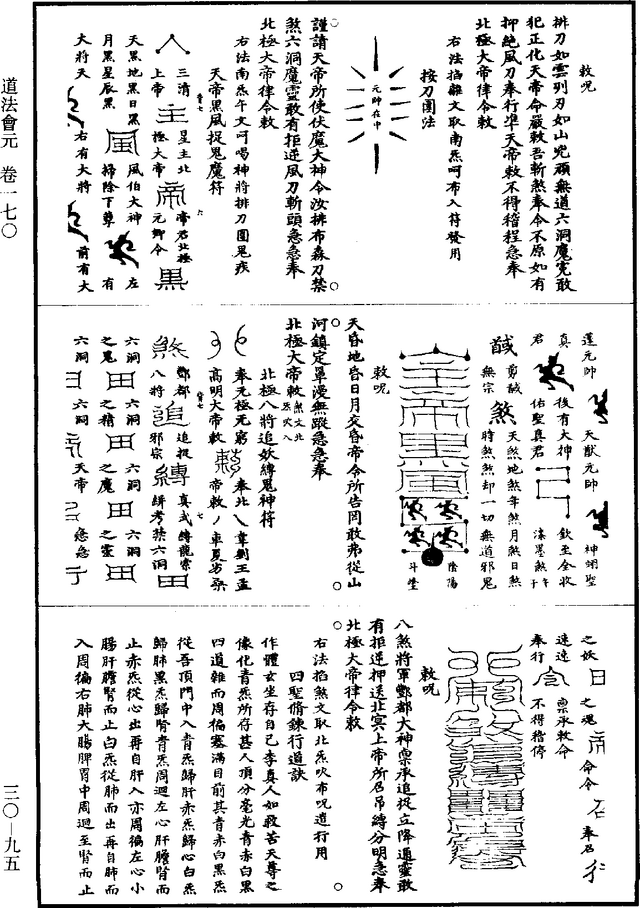 道法會元　卷一七〇
三〇—九五
敕咒
排刀如雲列刃如山兇頑無道六洞魔竟敢
犯正化天帝命嚴敕吾斬煞奉令不原如有
抑絶風刀奉行準天帝敕不得稽程急急奉
北極大帝律令敕
右法掐雜文取南炁呵布入符發用
按刀圖法
元帥在中
謹請天帝所使伏魔大神令汝排布森刀禁
煞六洞魔靈敢有拒逆風刀斬頭急急奉
北極大帝律令敕
右法南炁午文呵喝神將排刀圍鬼疾
天帝黑風捉鬼魔符
三清
上帝
主
星主北
極大帝
帝
帝君北極
元卿令
黑
天黑地黑日黑
月黑星辰黑
風伯大神
掃除下尊
左
有
大將天
右有大將
前有大
蓬元帥
天猷元帥
神翊聖
真
君
後有大神
佑聖真君
欽至全收
馘
剪馘
無宗
煞
天煞地煞年煞月煞日煞
時煞煞却一切無道邪鬼
陰陽
斗堂
敕咒
天昏地昏日月交昏帝令所告罔敢弗從山
河鎮定罩漫無蹤急急奉
北極大帝敕
煞文北
炁吹入
北極八將追妖縛鬼神符
奉元極元窮
奉北
高明大帝敕
帝敕
煞
酆都
八將
追
追捉
邪宗
縛
真武縛龍索
絣考禁六洞
田
六洞
之鬼
田
六洞
之精
田
六洞
之魔
田
六洞
之靈
田
六洞
日
六洞
天帝
急急
之妖
日
之魂
帝
命令
石
奉召
行
速遠
奉行
令
稟承敕命
不得稽停
敕咒
八煞將軍酆都大神稟承追捉立降通靈敢
有拒逆押送北冥上帝所召吊縛分明急奉
北極大帝律令敕
右法掐煞文取北炁吹布咒遣行用
四聖脩鍊行道訣
作體玄坐存自己李真人如救苦天尊之
像化青炁所存甚人頂分毫光青赤白黑
四道雜而周徧塞滿目前其青赤白黑炁
從吾頂門中入青炁歸肝赤炁歸心白炁
歸肺黑炁歸腎青炁周迴左心肝膽腎而
止赤炁從心出再自肝入亦周徧左心小
腸肝膽腎而止白炁從肺而出再自肺而
入周徧右肺大腸脾胃中周迴至腎而止